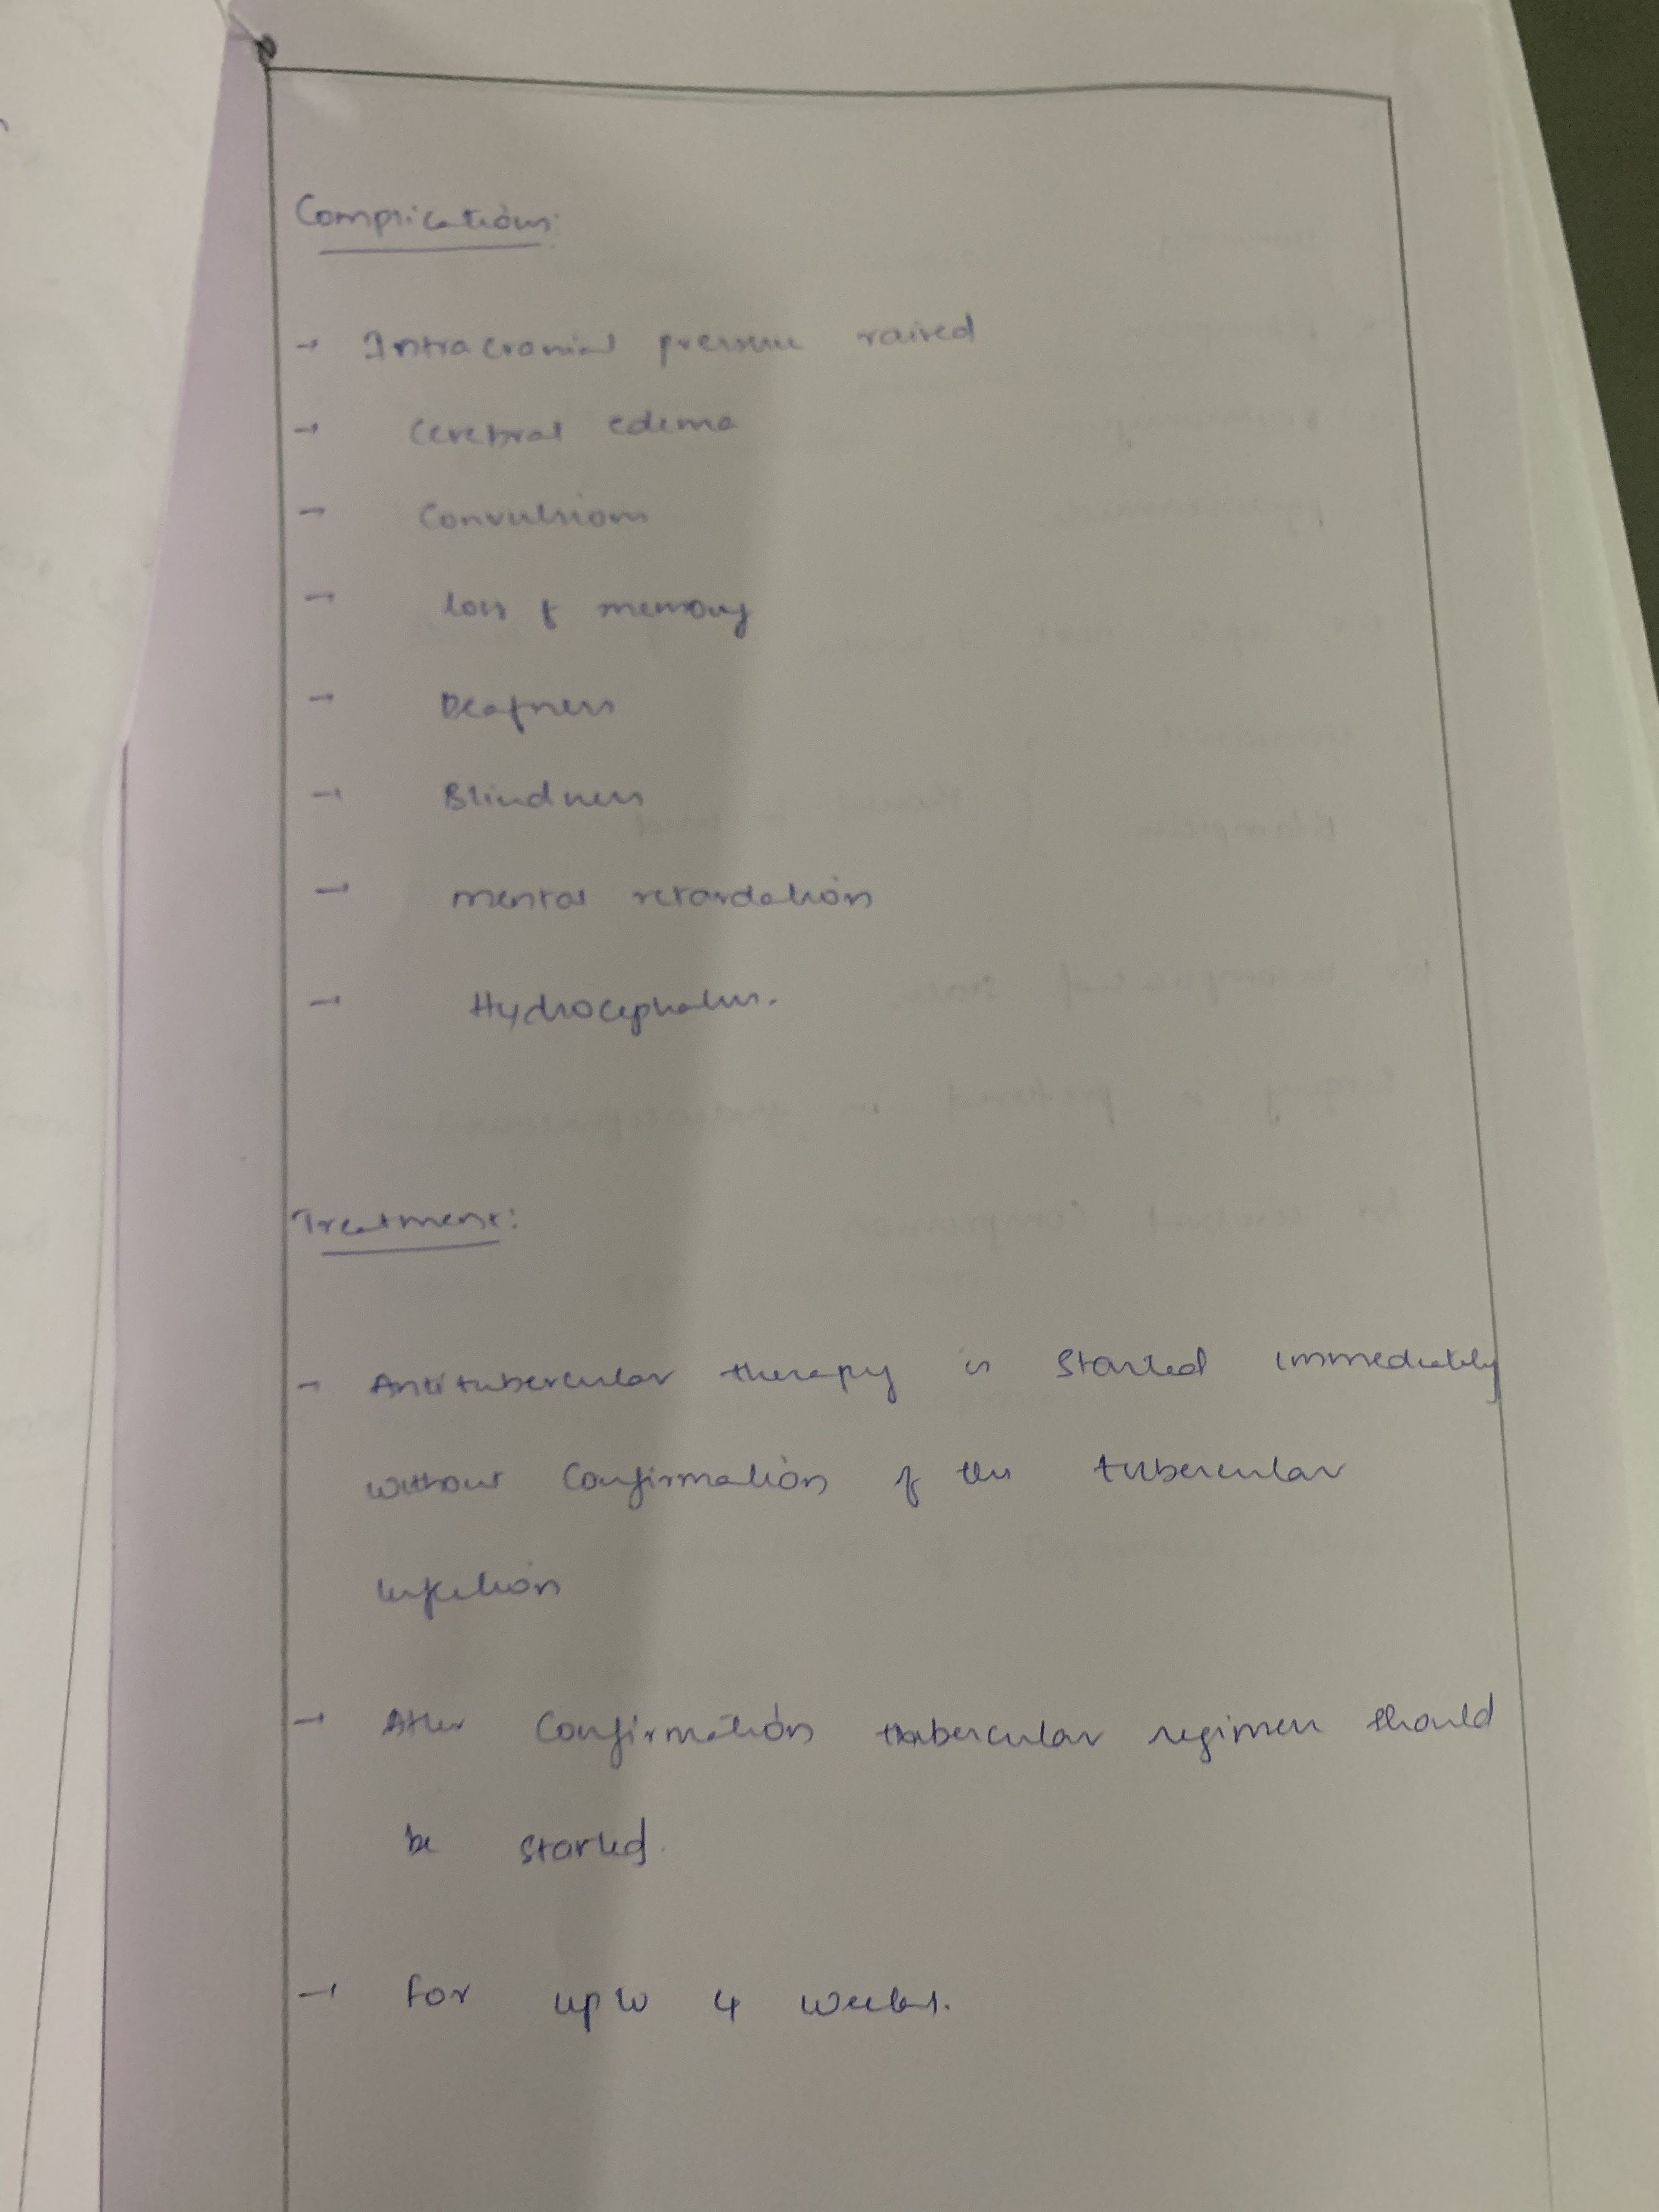 Complications:
→ Intracranial pressure raised
→ Cerebral edema
→ Convulsions
→ loss of memory
→ Deafness
→ Blindness
→ mental retardation
→ Hydrocephalus.
Treatment:
→ Antitubercular therapy is started immediately
without confirmation of the tubercular
infection
→ After confirmation tubercular regimen should
be started.
→ For upto 4 weeks.